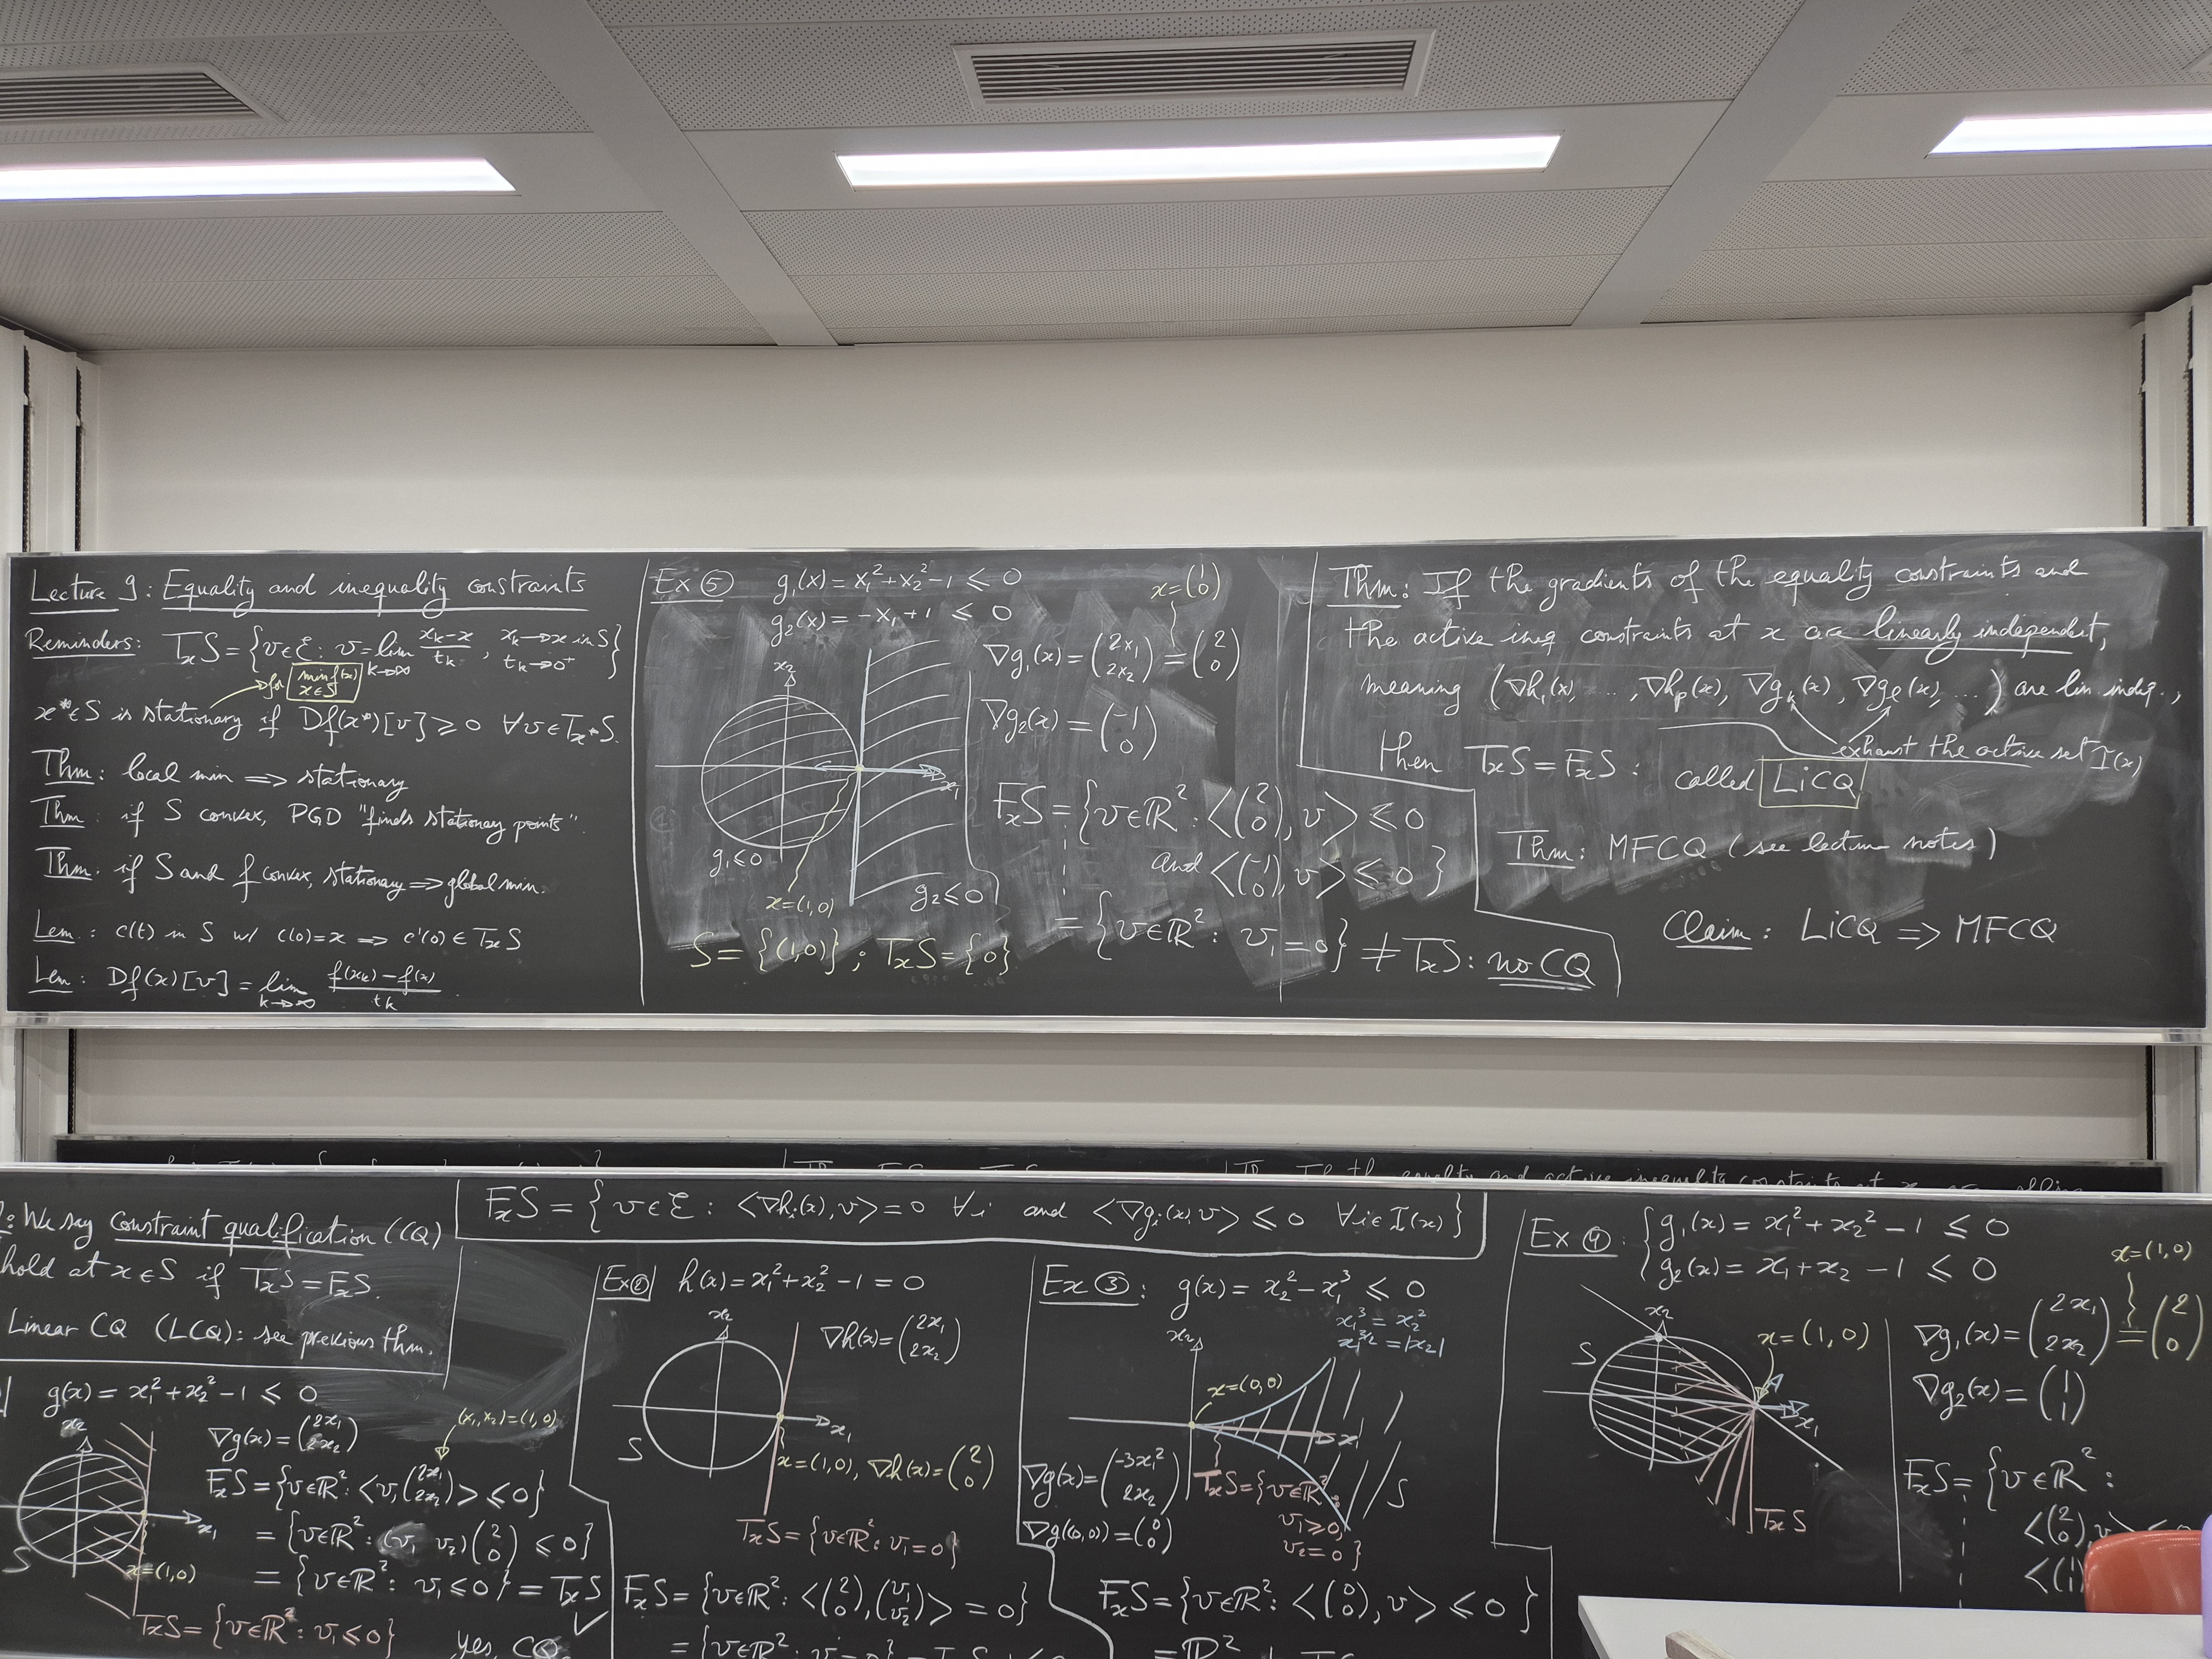 Lecture 9: Equality and inequality constraints
Reminders: TₓS = {v∈ℰ: v = lim_{k→∞} (x_k − x)/t_k , x_k→x in S, t_k→0⁺}
for min_{x∈S} f(x)
x*∈S is stationary if Df(x*)[v] ⩾ 0 ∀v∈T_{x*}S.
Thm: local min ⟹ stationary
Thm: if S convex, PGD "finds stationary points".
Thm: if S and f convex, stationary ⟹ global min.
Lem: c(t) in S w/ c(0)=x ⟹ c'(0) ∈ TₓS
Lem: Df(x)[v] = lim_{k→∞} (f(x_k) − f(x))/t_k
Ex ⑤ g₁(x) = x₁² + x₂² − 1 ⩽ 0
g₂(x) = −x₁ + 1 ⩽ 0
x = (1 0)
∇g₁(x) = (2x₁ 2x₂) = (2 0)
x₂
∇g₂(x) = (−1 0)
x₁
g₁⩽0
x=(1,0)
g₂⩽0
FₓS = {v∈ℝ²: <(2 0), v> ⩽ 0
and <(−1 0), v> ⩽ 0}
= {v∈ℝ²: v₁ = 0} ≠ TₓS: no CQ
S = {(1,0)}; TₓS = {0}
Thm: If the gradients of the equality constraints and
the active ineq constraints at x are linearly independent,
meaning (∇h₁(x), ..., ∇h_p(x), ∇g_k(x), ∇g_ℓ(x), ...) are lin indep.,
exhaust the active set I(x)
then TₓS = FₓS: called LiCQ
Thm: MFCQ (see lecture notes)
Claim: LiCQ ⟹ MFCQ
: We say constraint qualification (CQ)
hold at x∈S if TₓS = FₓS.
Linear CQ (LCQ): see previous thm.
FₓS = {v∈ℰ: <∇hᵢ(x), v> = 0 ∀i and <∇gᵢ(x), v> ⩽ 0 ∀i∈I(x)}
g(x) = x₁² + x₂² − 1 ⩽ 0
x₂
∇g(x) = (2x₁ 2x₂)
(x₁,x₂)=(1,0)
FₓS = {v∈ℝ²: <v, (2x₁ 2x₂)> ⩽ 0}
x₁
= {v∈ℝ²: (v₁ v₂)(2 0) ⩽ 0}
S
x=(1,0)
= {v∈ℝ²: v₁ ⩽ 0} = TₓS ✓
TₓS = {v∈ℝ²: v₁ ⩽ 0}
yes, CQ
Ex② h(x) = x₁² + x₂² − 1 = 0
x₂
∇h(x) = (2x₁ 2x₂)
x₁
S
x=(1,0), ∇h(x) = (2 0)
TₓS = {v∈ℝ²: v₁ = 0}
FₓS = {v∈ℝ²: <(2 0), (v₁ v₂)> = 0}
Ex ③: g(x) = x₂² − x₁³ ⩽ 0
x₁³ = x₂²
x₁^{3/2} = |x₂|
x₂
x=(0,0)
x₁
∇g(x) = (−3x₁² 2x₂)
∇g(0,0) = (0 0)
TₓS = {v∈ℝ²:
v₁⩾0,
v₂=0}
S
FₓS = {v∈ℝ²: <(0 0), v> ⩽ 0}
= ℝ²
Ex ④: g₁(x) = x₁² + x₂² − 1 ⩽ 0
g₂(x) = x₁ + x₂ − 1 ⩽ 0
x=(1,0)
x₂
x=(1,0)
S
x₁
TₓS
∇g₁(x) = (2x₁ 2x₂) = (2 0)
∇g₂(x) = (1 1)
FₓS = {v∈ℝ²:
<(2 0), v>